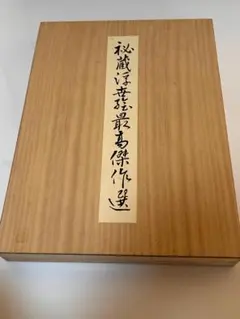 秘蔵浮世絵最高傑作選